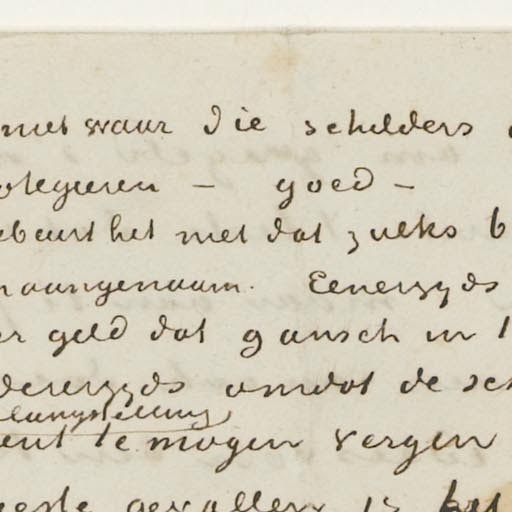 niet waar die schilders
olegeeren – goed –
ebeurt het niet dat zulks b
naangenaam. Eenerzyds
er geld dat gansch in
derzyds omdat de sch
elangstelling
ent te mogen vergen
eeste gevallen is het